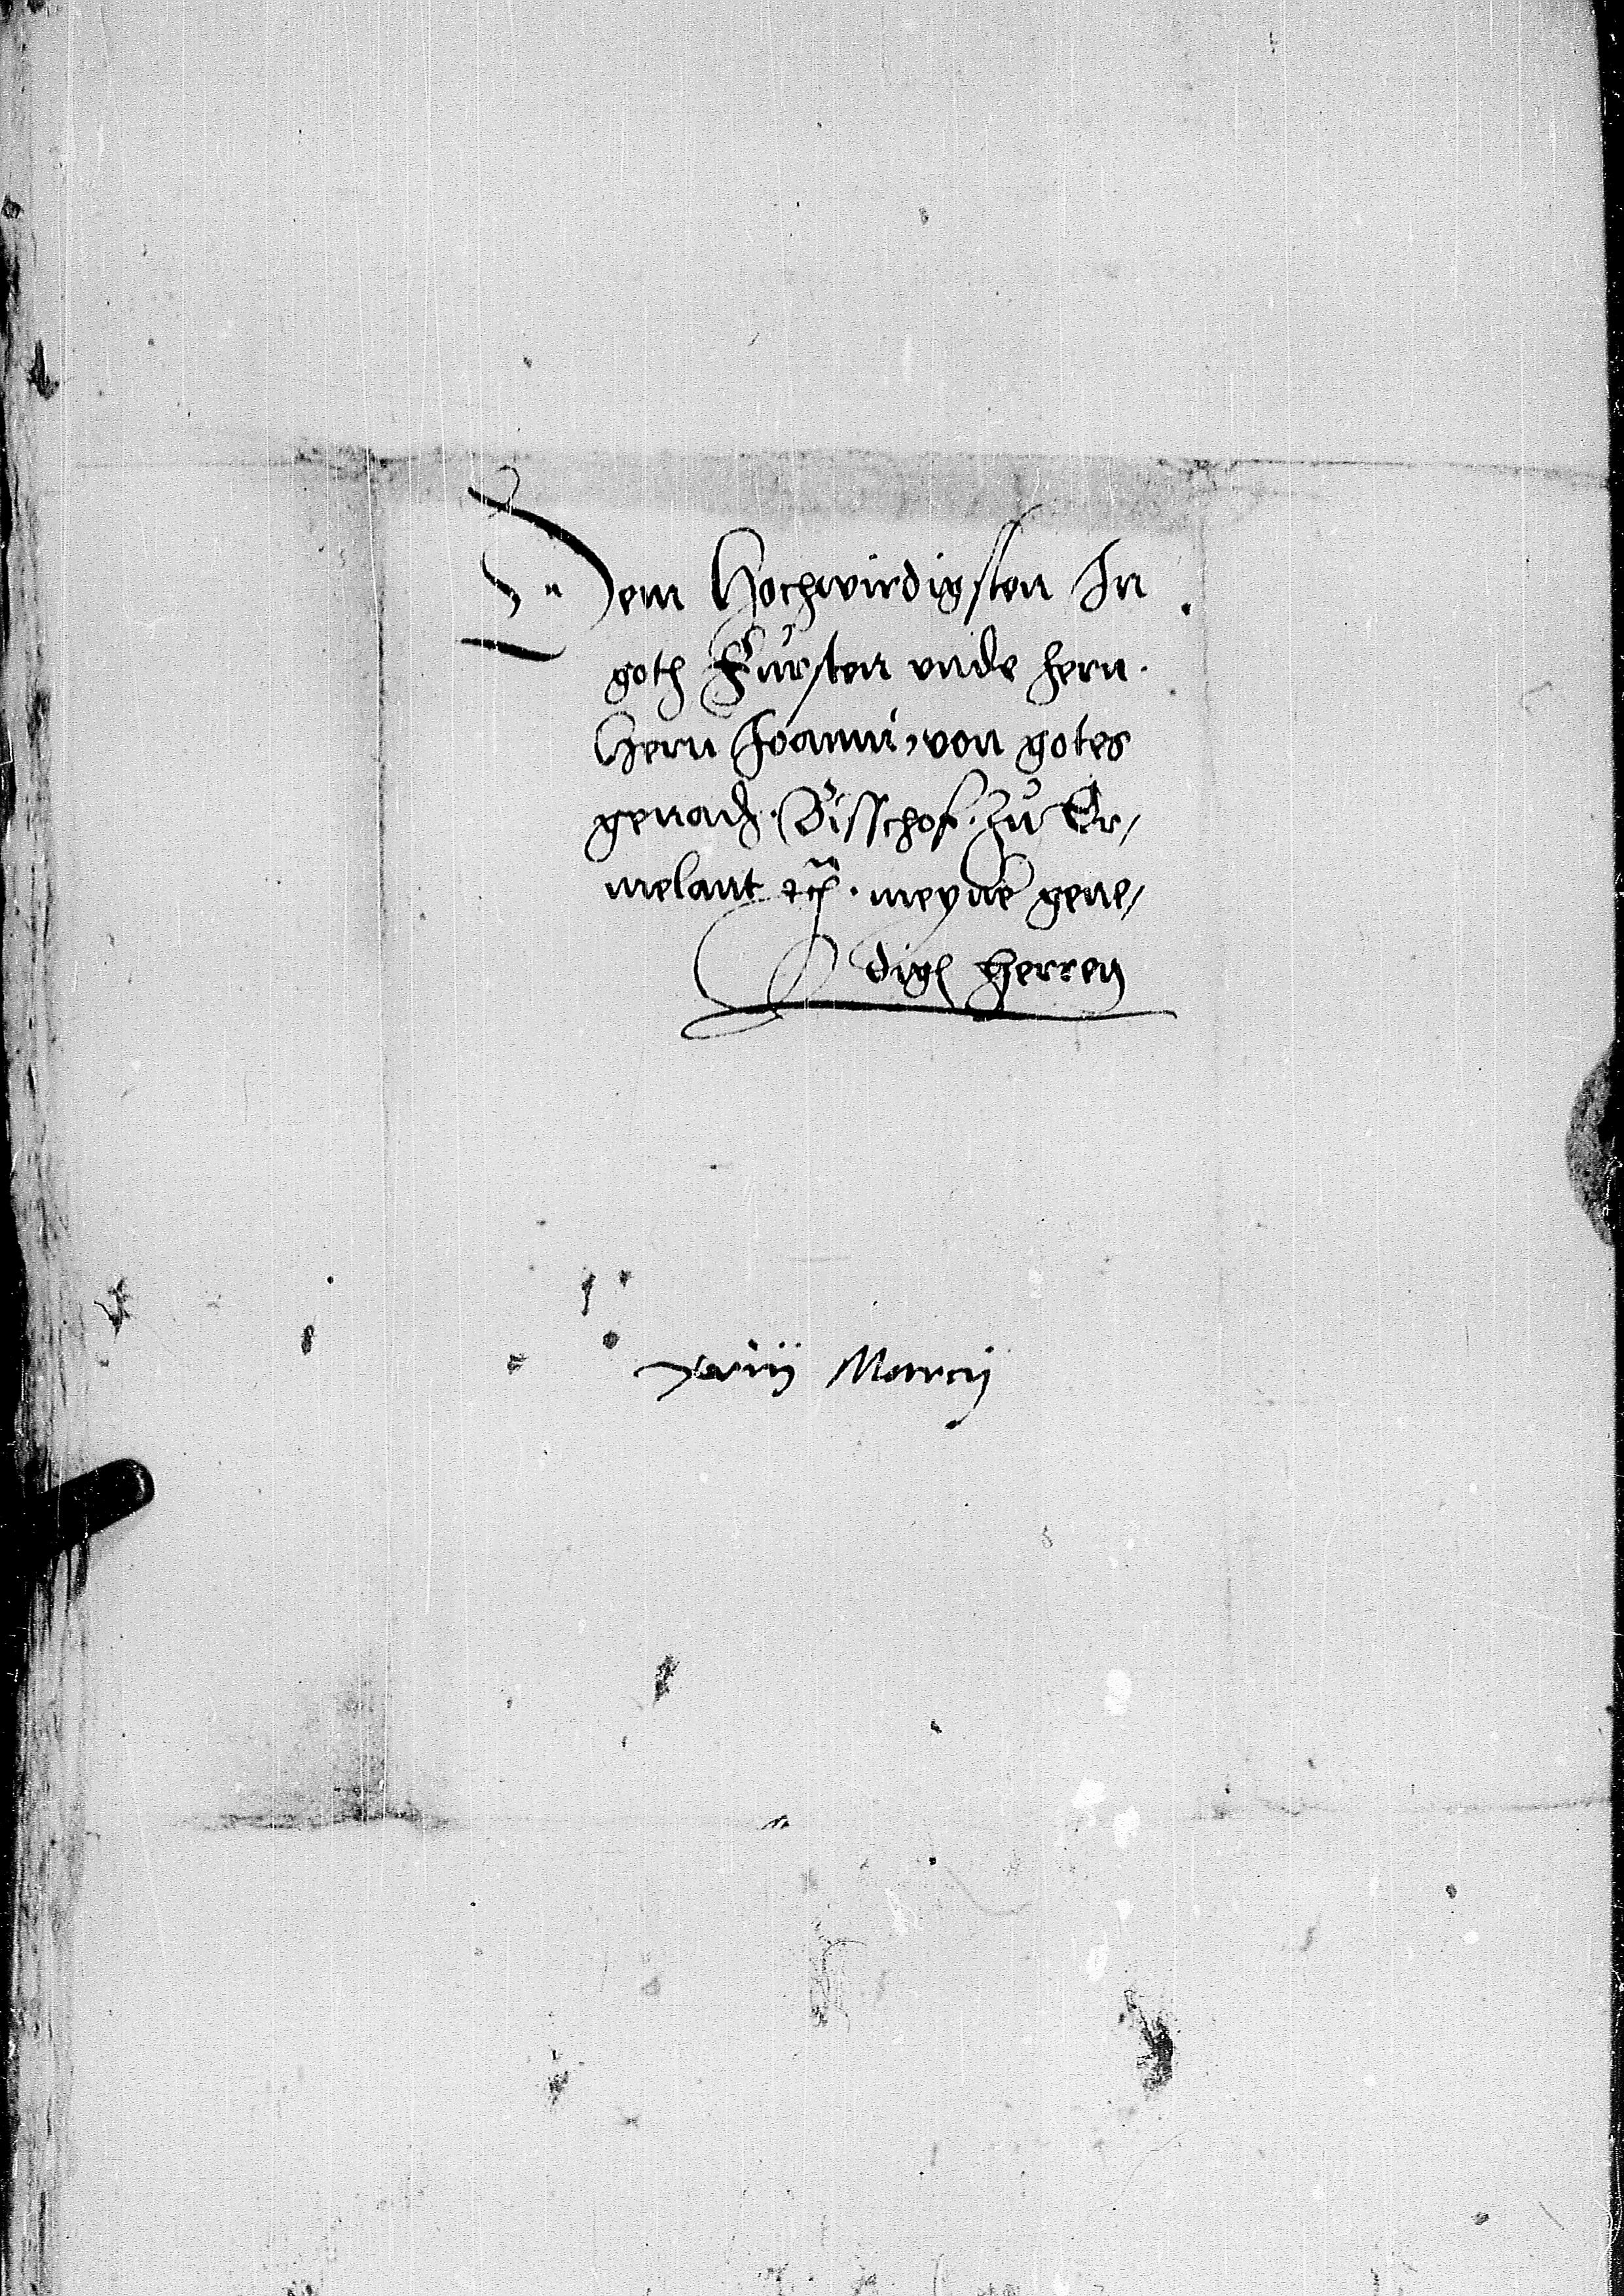 Dem Hochwirdigsten In
goth Fürsten unde hern.
Hern Joanni, von gotes
genad. Bisschof. zu Er/
melant etc. meyne gene/
dig herren
xviij Marcij